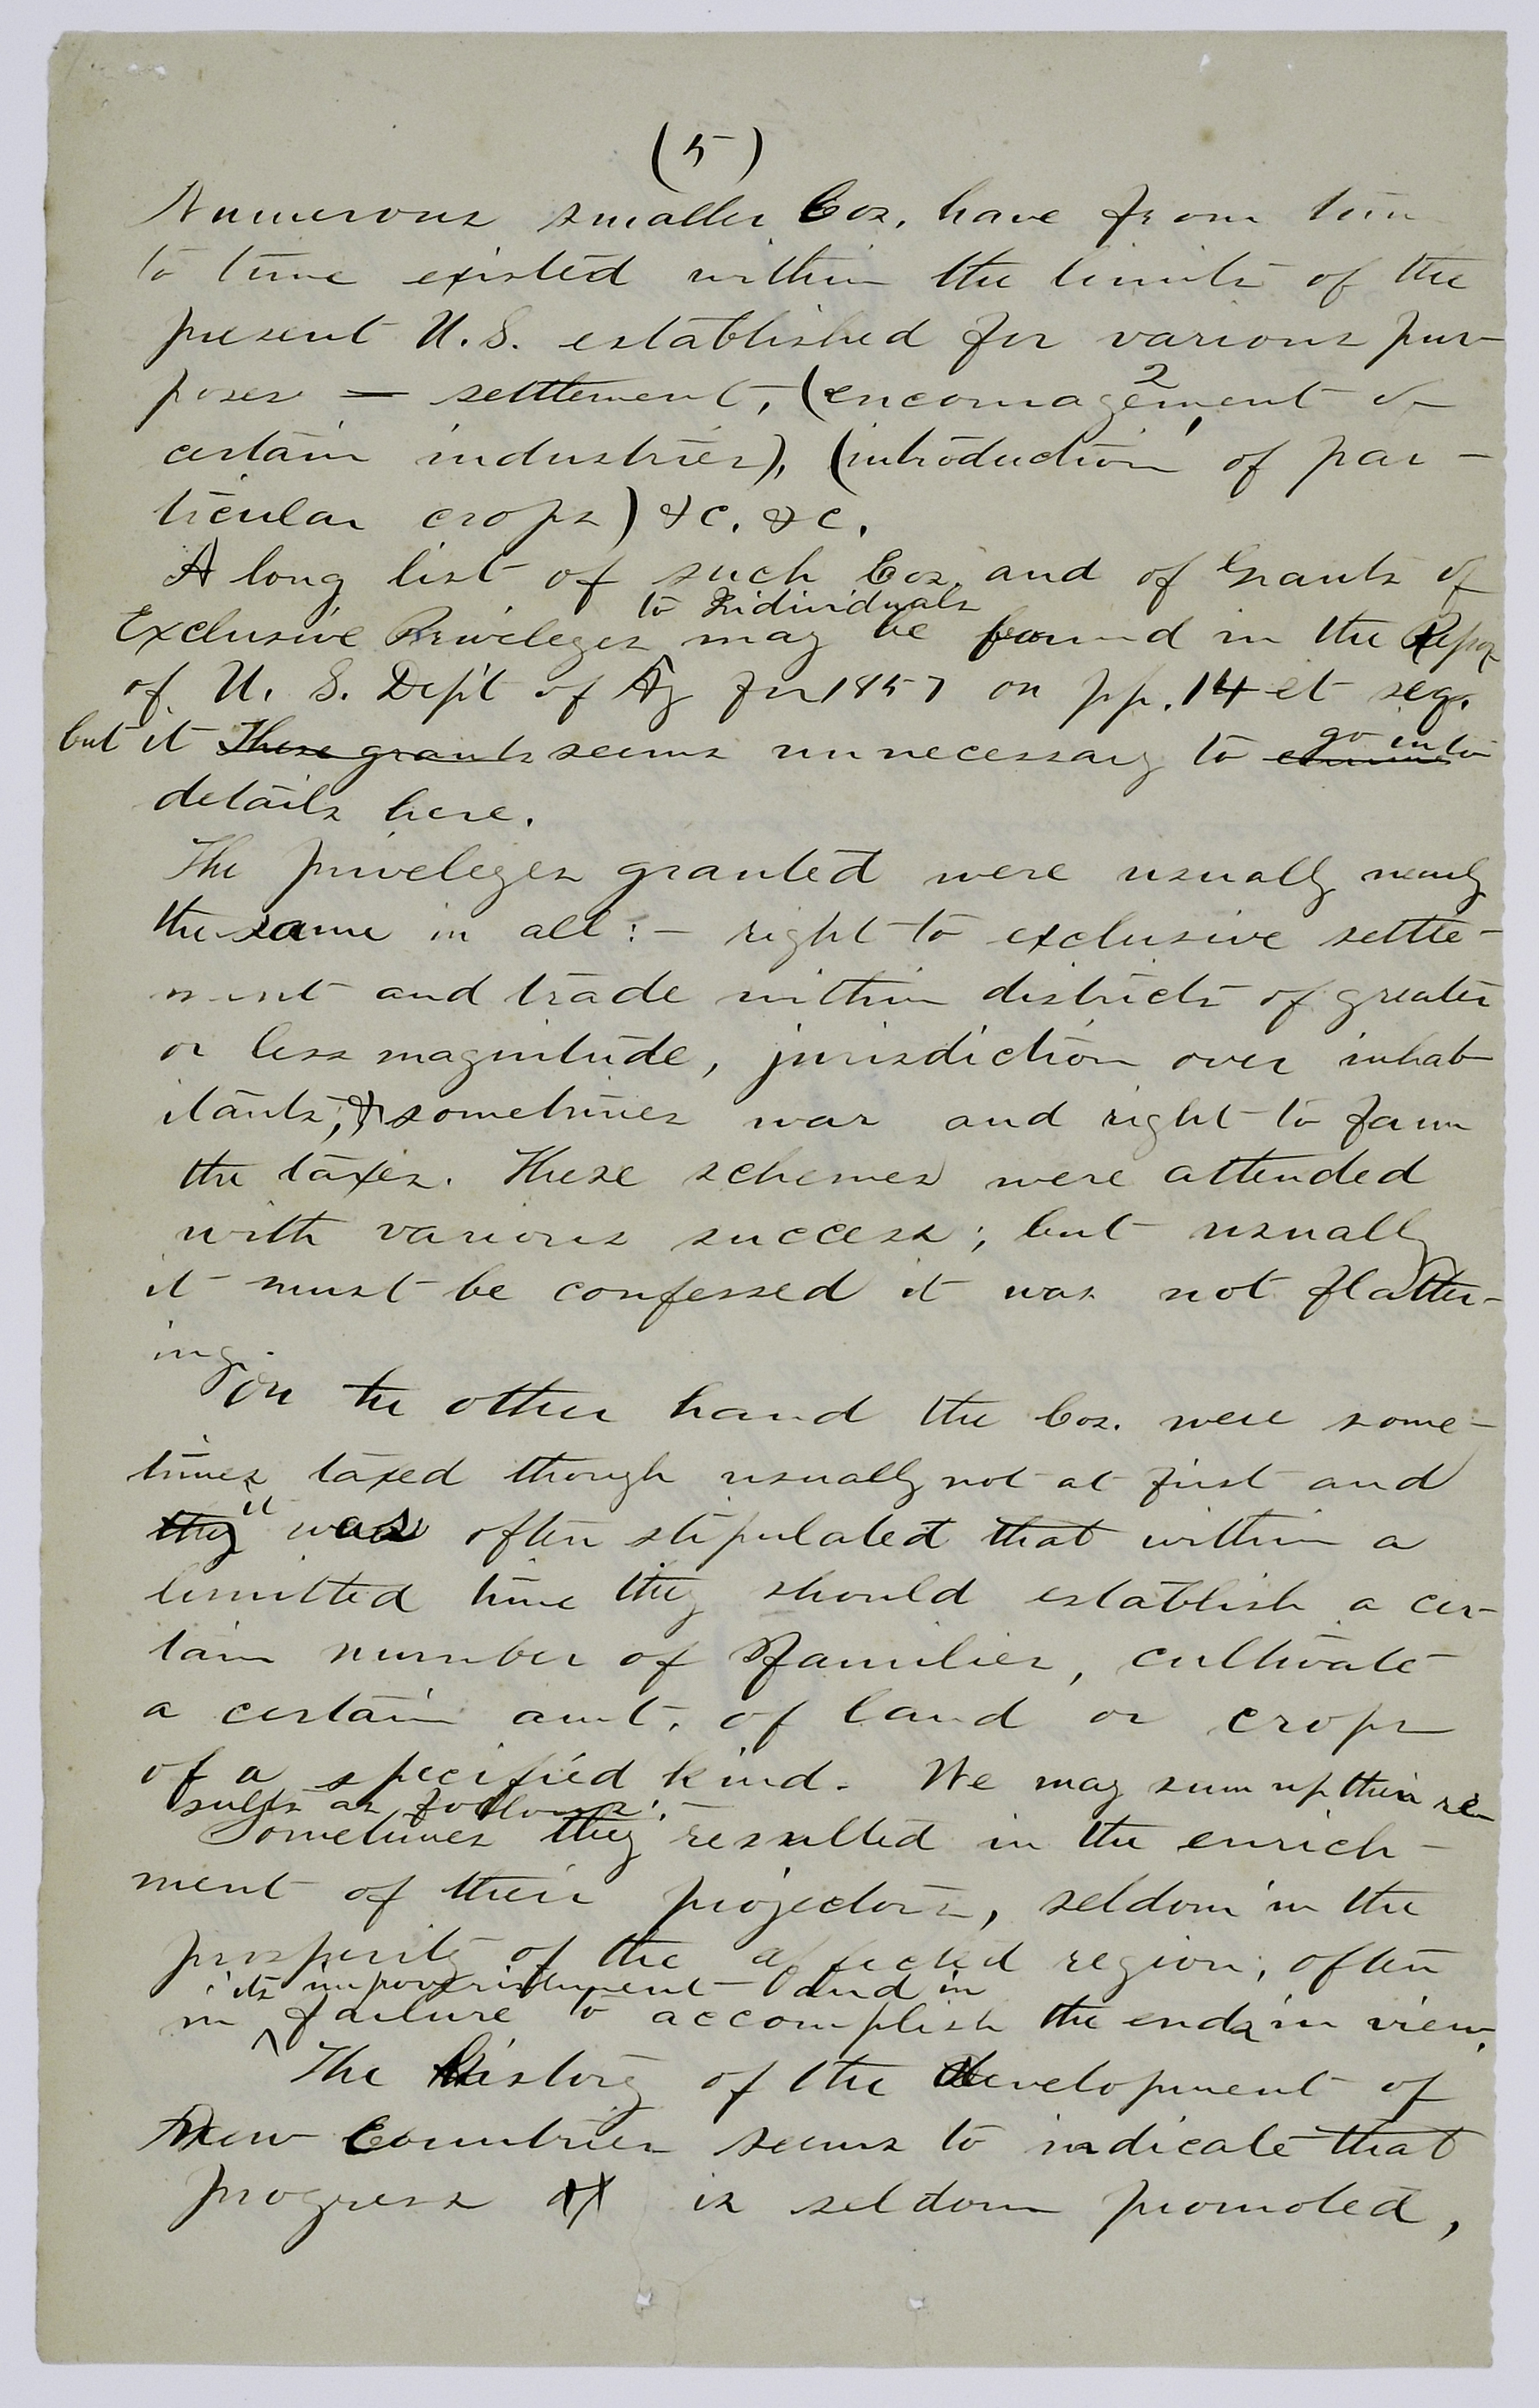 (5)
Numerous smaller Cos. have from time
to time existed within the limits of the
present U.S. established for various pur-
poses = settlement, (encouragement of
2
certain industries), (introduction of par-
ticular crops) &c. &c.
A long list of such Cos. and of Grants of
to Individuals
Exclusive Priveleges may be found in the Repor
of U. S. Dep't of Ag for 1857 on pp. 14 et seq.
but it These grants seems unnecessary to go into
details here.
The priveleges granted were usually nearly
the same in all :- right to exclusive settle-
ment and trade within districts of greater
or less magnitude, jurisdiction over inhab-
itants, & sometimes war and right to farm
the taxes. These schemes were attended
with various success; but usually
it must be confessed it was not flatter-
ing.
On the other hand the Cos. were some-
times taxed though usually not at first and
they it was often stipulated that within a
limitted time they should establish a cer-
tain number of families, cultivate
a certain amt. of land or crops
of a specified kind. We may sum up their re-
sults as follows:-
Sometimes they resulted in the enrich-
ment of their projectors, seldom in the
prosperity of the affected region; often
its impoverishment and in
in failure to accomplish the ends in view.
The history of the development of
New Countries seems to indicate that
progress of is seldom promoted,